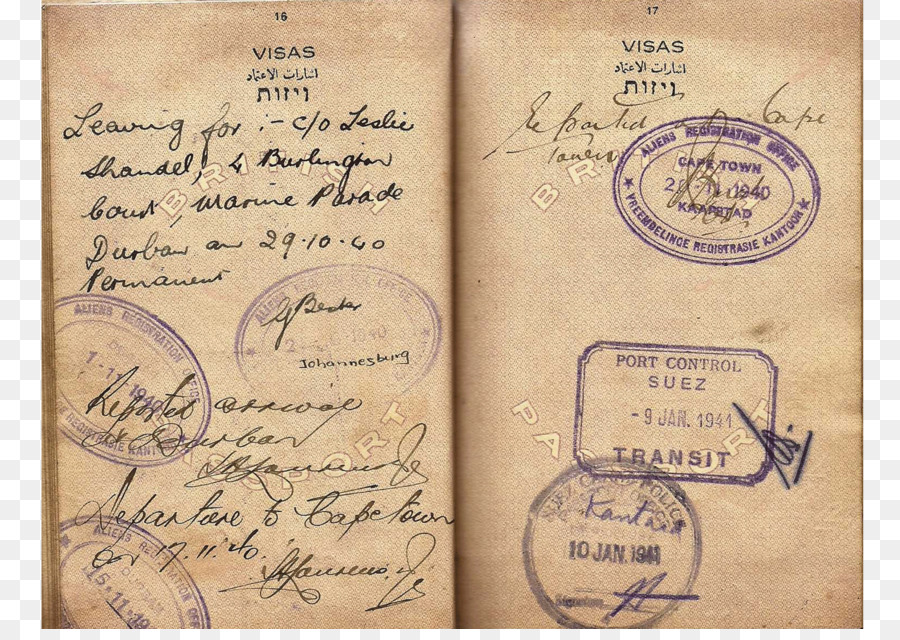 16
VISAS
اشارات الاعتماد
ויזות
Leaving for :- c/o Leslie
Shandel, 4 Burlington
Court, Marine Parade
Durban on 29-10-40
Permanent
ALIENS REGISTRATION OFFICE
G Bester
Johannesburg
ALIENS REGISTRATION OFFICE
1-11-1940
REGISTRASIE KANTOOR
Reported arrival
Durban
Departure to Capetown
on 17.11.40.
ALIENS REGISTRATION
DURBAN
15-11-19
BRITISH
PASSPORT
17
VISAS
اشارات الاعتماد
ויזות
Reported Cape
Town
ALIENS REGISTRATION OFFICE
CAPE TOWN
11-1940
KAAPSTAD
VREEMDELINGE REGISTRASIE KANTOOR
PORT CONTROL
SUEZ
-9 JAN. 1941
TRANSIT
POLICE
10 JAN. 1941
Signature